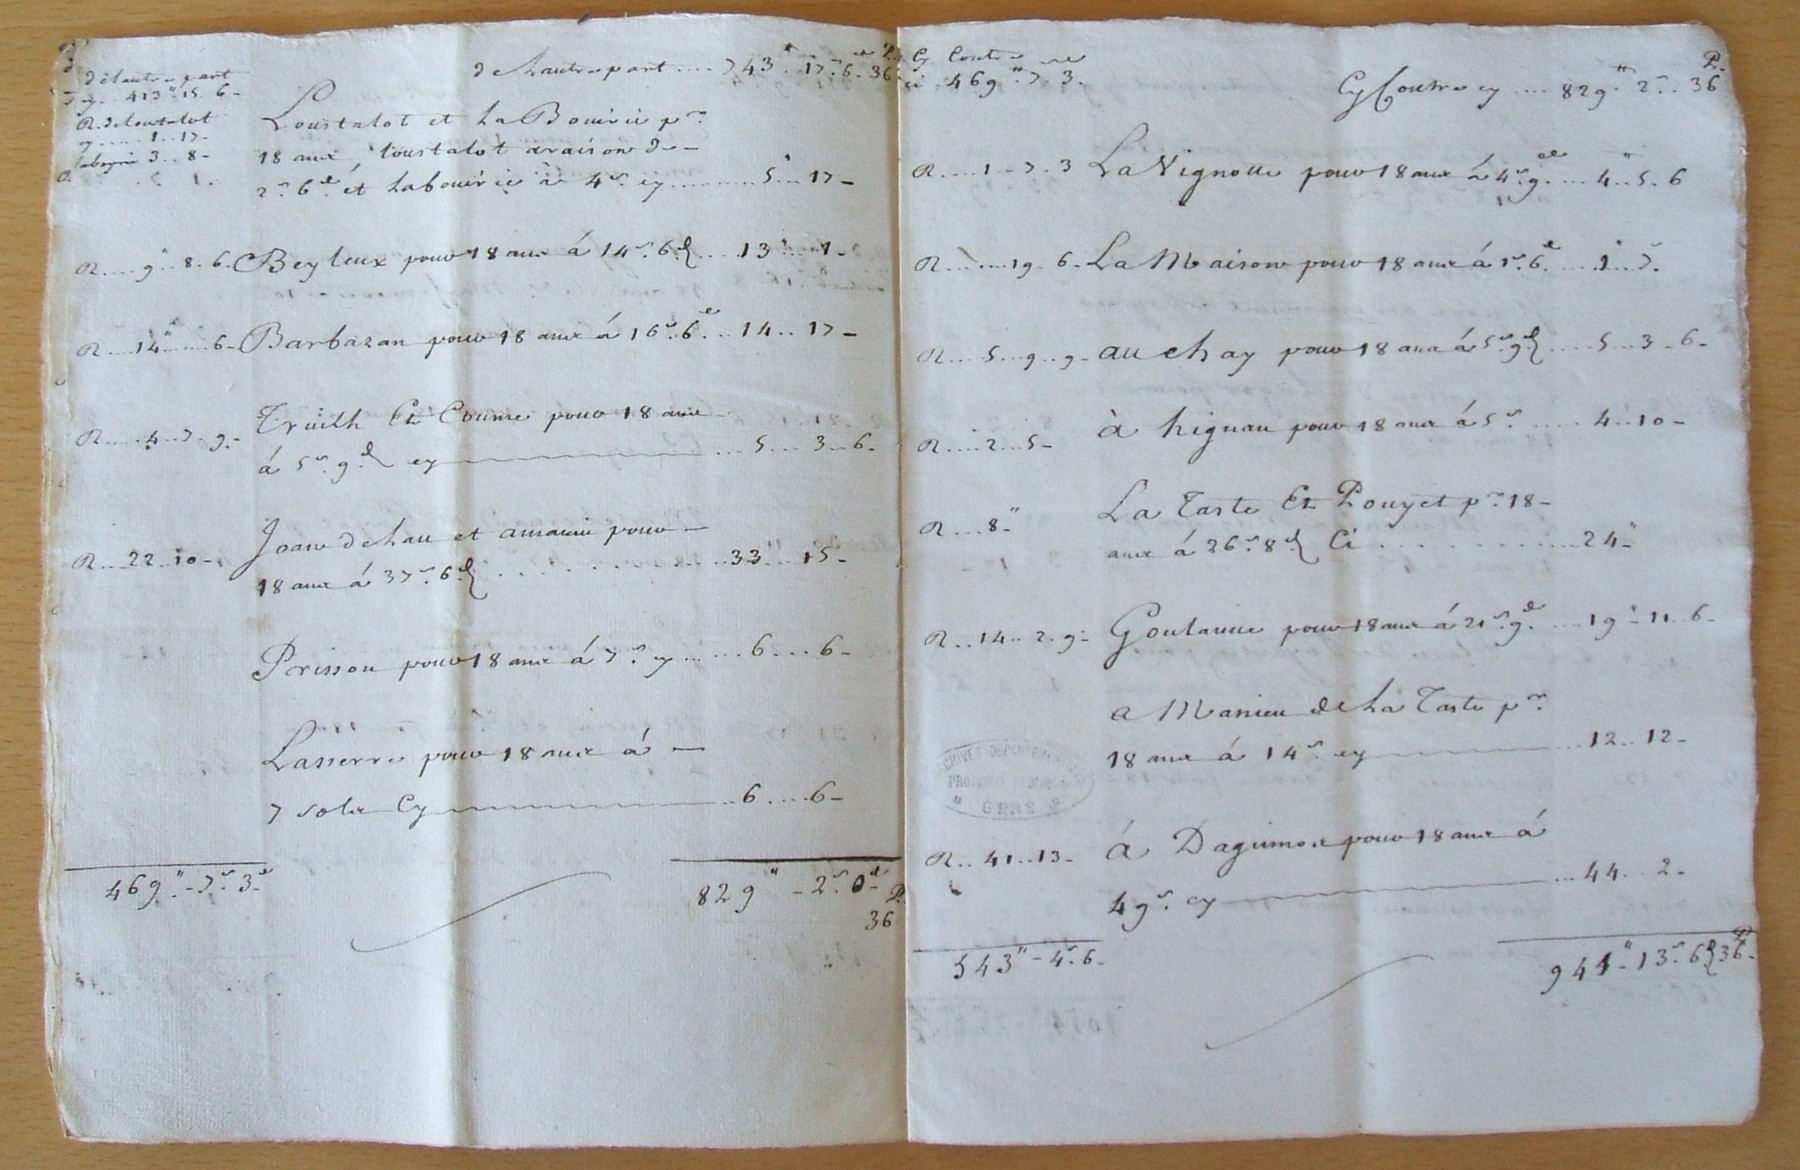 de lautre part
cy .. 413" 15. 6-
R. de Loutalot
cy .... 1 .. 17-
3 .. 8-
de hautre part .... 743" 17s 6d 36 P.
Loustalot et La Bouirie pr.
18 ans, loustalot araison de -
2s. 6d et Labouirie à 4s cy ......... 5 ... 17-
R .... 9" .. 8. 6. Beyleux pour 18 ans á 14s 6d .... 13" .. 1-
R ... 14" ..... 6- Barbazan pour 18 ans á 16s. 6d ... 14 .. 17-
Truilh Et Coume pour 18 ans
R ..... 4 .. 7 - 9- á 5s 9d cy ... 5 ... 3 .. 6-
Joan dehau et pour -
R ... 22 .. 10- 18 ans á 37s. 6d ......... 33" ... 15-
Prissou pour 18 ans á 7s cy ..... 6 ... 6-
Lasserre pour 18 ans á -
7 sols Cy ... 6 .... 6-
469" - 7s 3d
829" - 2s 0d P.
36
Cy Contre
ci 469" 7. 3.
Cy Contre cy .... 829" 2s .. 36 P.
R .... 1 .. 7. 3 La Vignolle pour 18 ans á 4s 9d .... 4" .. 5. 6
R ...... 19. 6- La Maison pour 18 ans á 1s. 6d ..... 1" .. 7.
R ... 5 .. 9 .. 9- au chay pour 18 ans á 5s 9d ..... 5 ... 3 .. 6-
R .... 2 ... 5- à hignau pour 18 ans á 5s ..... 4 .. 10-
La Taste Et Pouyet pr. 18-
R ... 8"- ans á 26s 8d Ci ......... 24"-
R .. 14 .. 2. 9- Goulanne pour 18 ans á 21s. 9d .... 19" .. 11 .. 6-
a Manieu de La Taste pr.
18 ans á 14s cy ... 12 .. 12-
ARCHIVES DÉPARTEMENTALES
GERS
R .. 41 .. 13- á Daguinos pour 18 ans á
49s. cy ... 44 .. 2-
543" - 4s. 6-
944" - 13s. 6d 36 P.